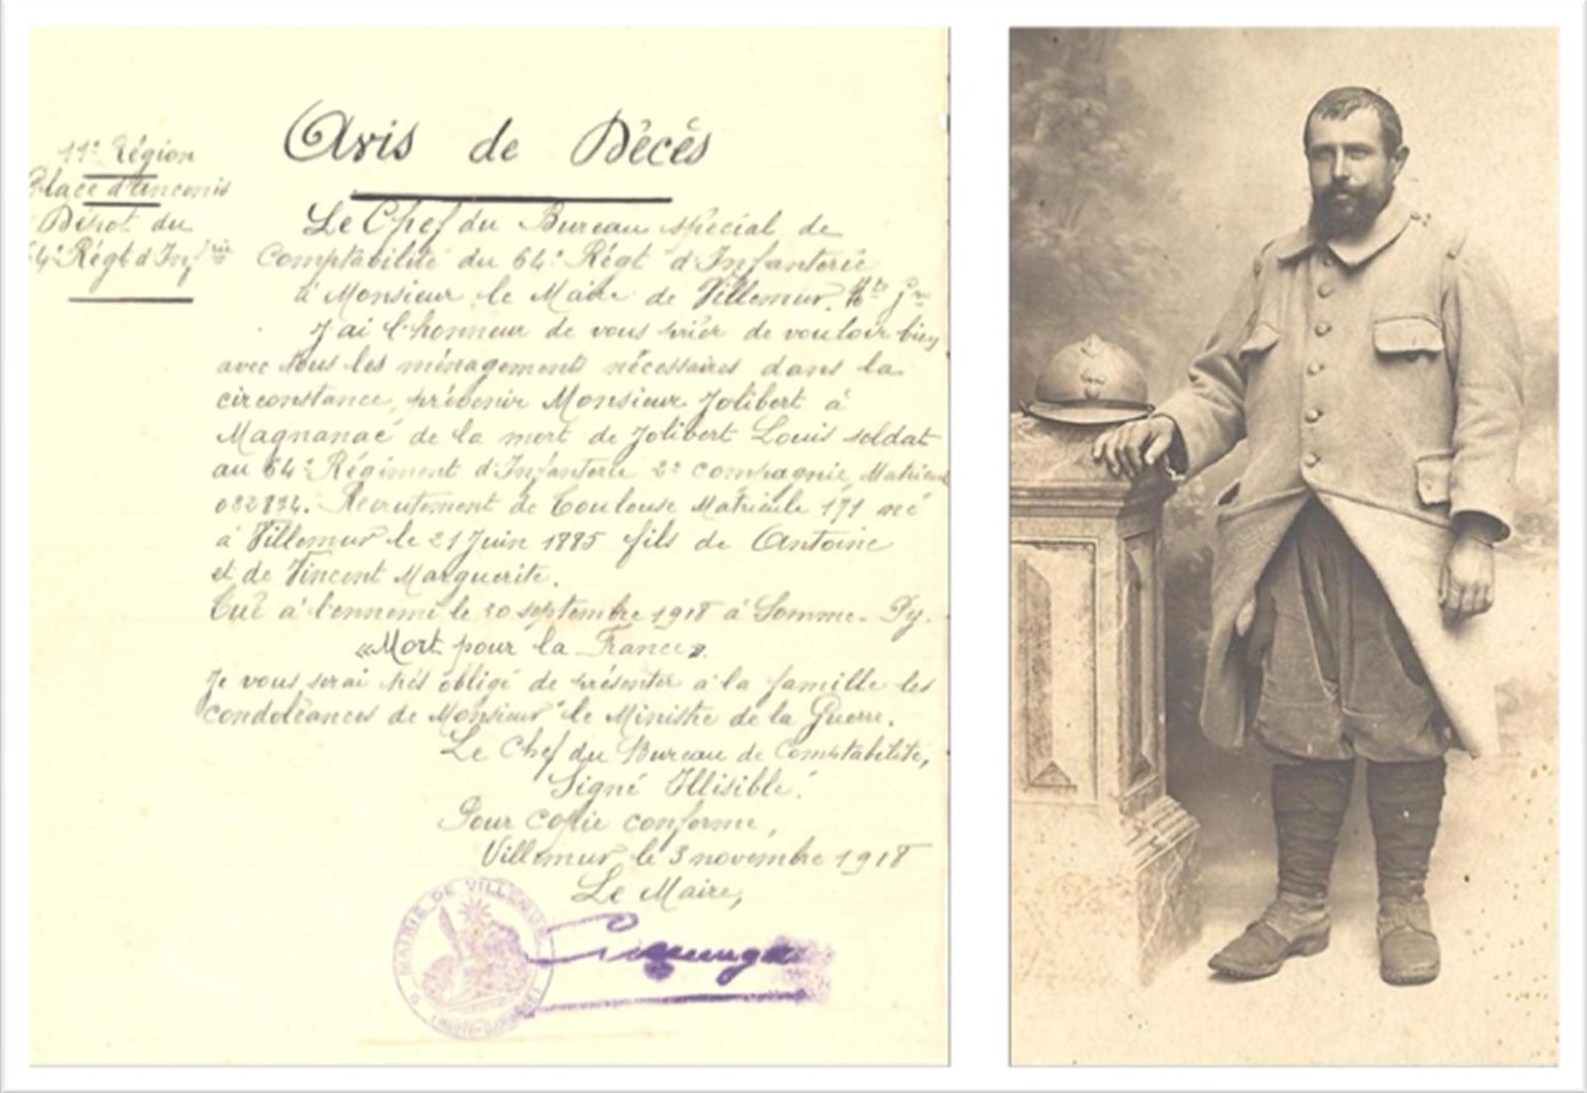 11e Région
Place d'Ancenis
Dépôt du
64e Régt d'Infrie
Avis de Décès
Le Chef du Bureau spécial de
Comptabilité du 64e Régt d'Infanterie
à Monsieur le Maire de Villemur. Hte Gne
J'ai l'honneur de vous prier de vouloir bien
avec tous les ménagements nécessaires dans la
circonstance, prévenir Monsieur Jolibert à
Magnanac de la mort de Jolibert Louis soldat
au 64e Régiment d'Infanterie 2e Compagnie, Matricule
022834. Recrutement de Toulouse Matricule 171 né
à Villemur le 21 Juin 1885 fils de Antoine
et de Vincent Marguerite.
Tué à l'ennemi le 30 septembre 1918 à Somme-Py.
«Mort pour la France».
Je vous serai très obligé de présenter à la famille les
condoléances de Monsieur le Ministre de la Guerre.
Le Chef du Bureau de Comptabilité,
Signé Illisible.
Pour copie conforme,
Villemur le 3 novembre 1918
Le Maire,
MAIRIE DE VILLEMUR
HAUTE-GARONNE